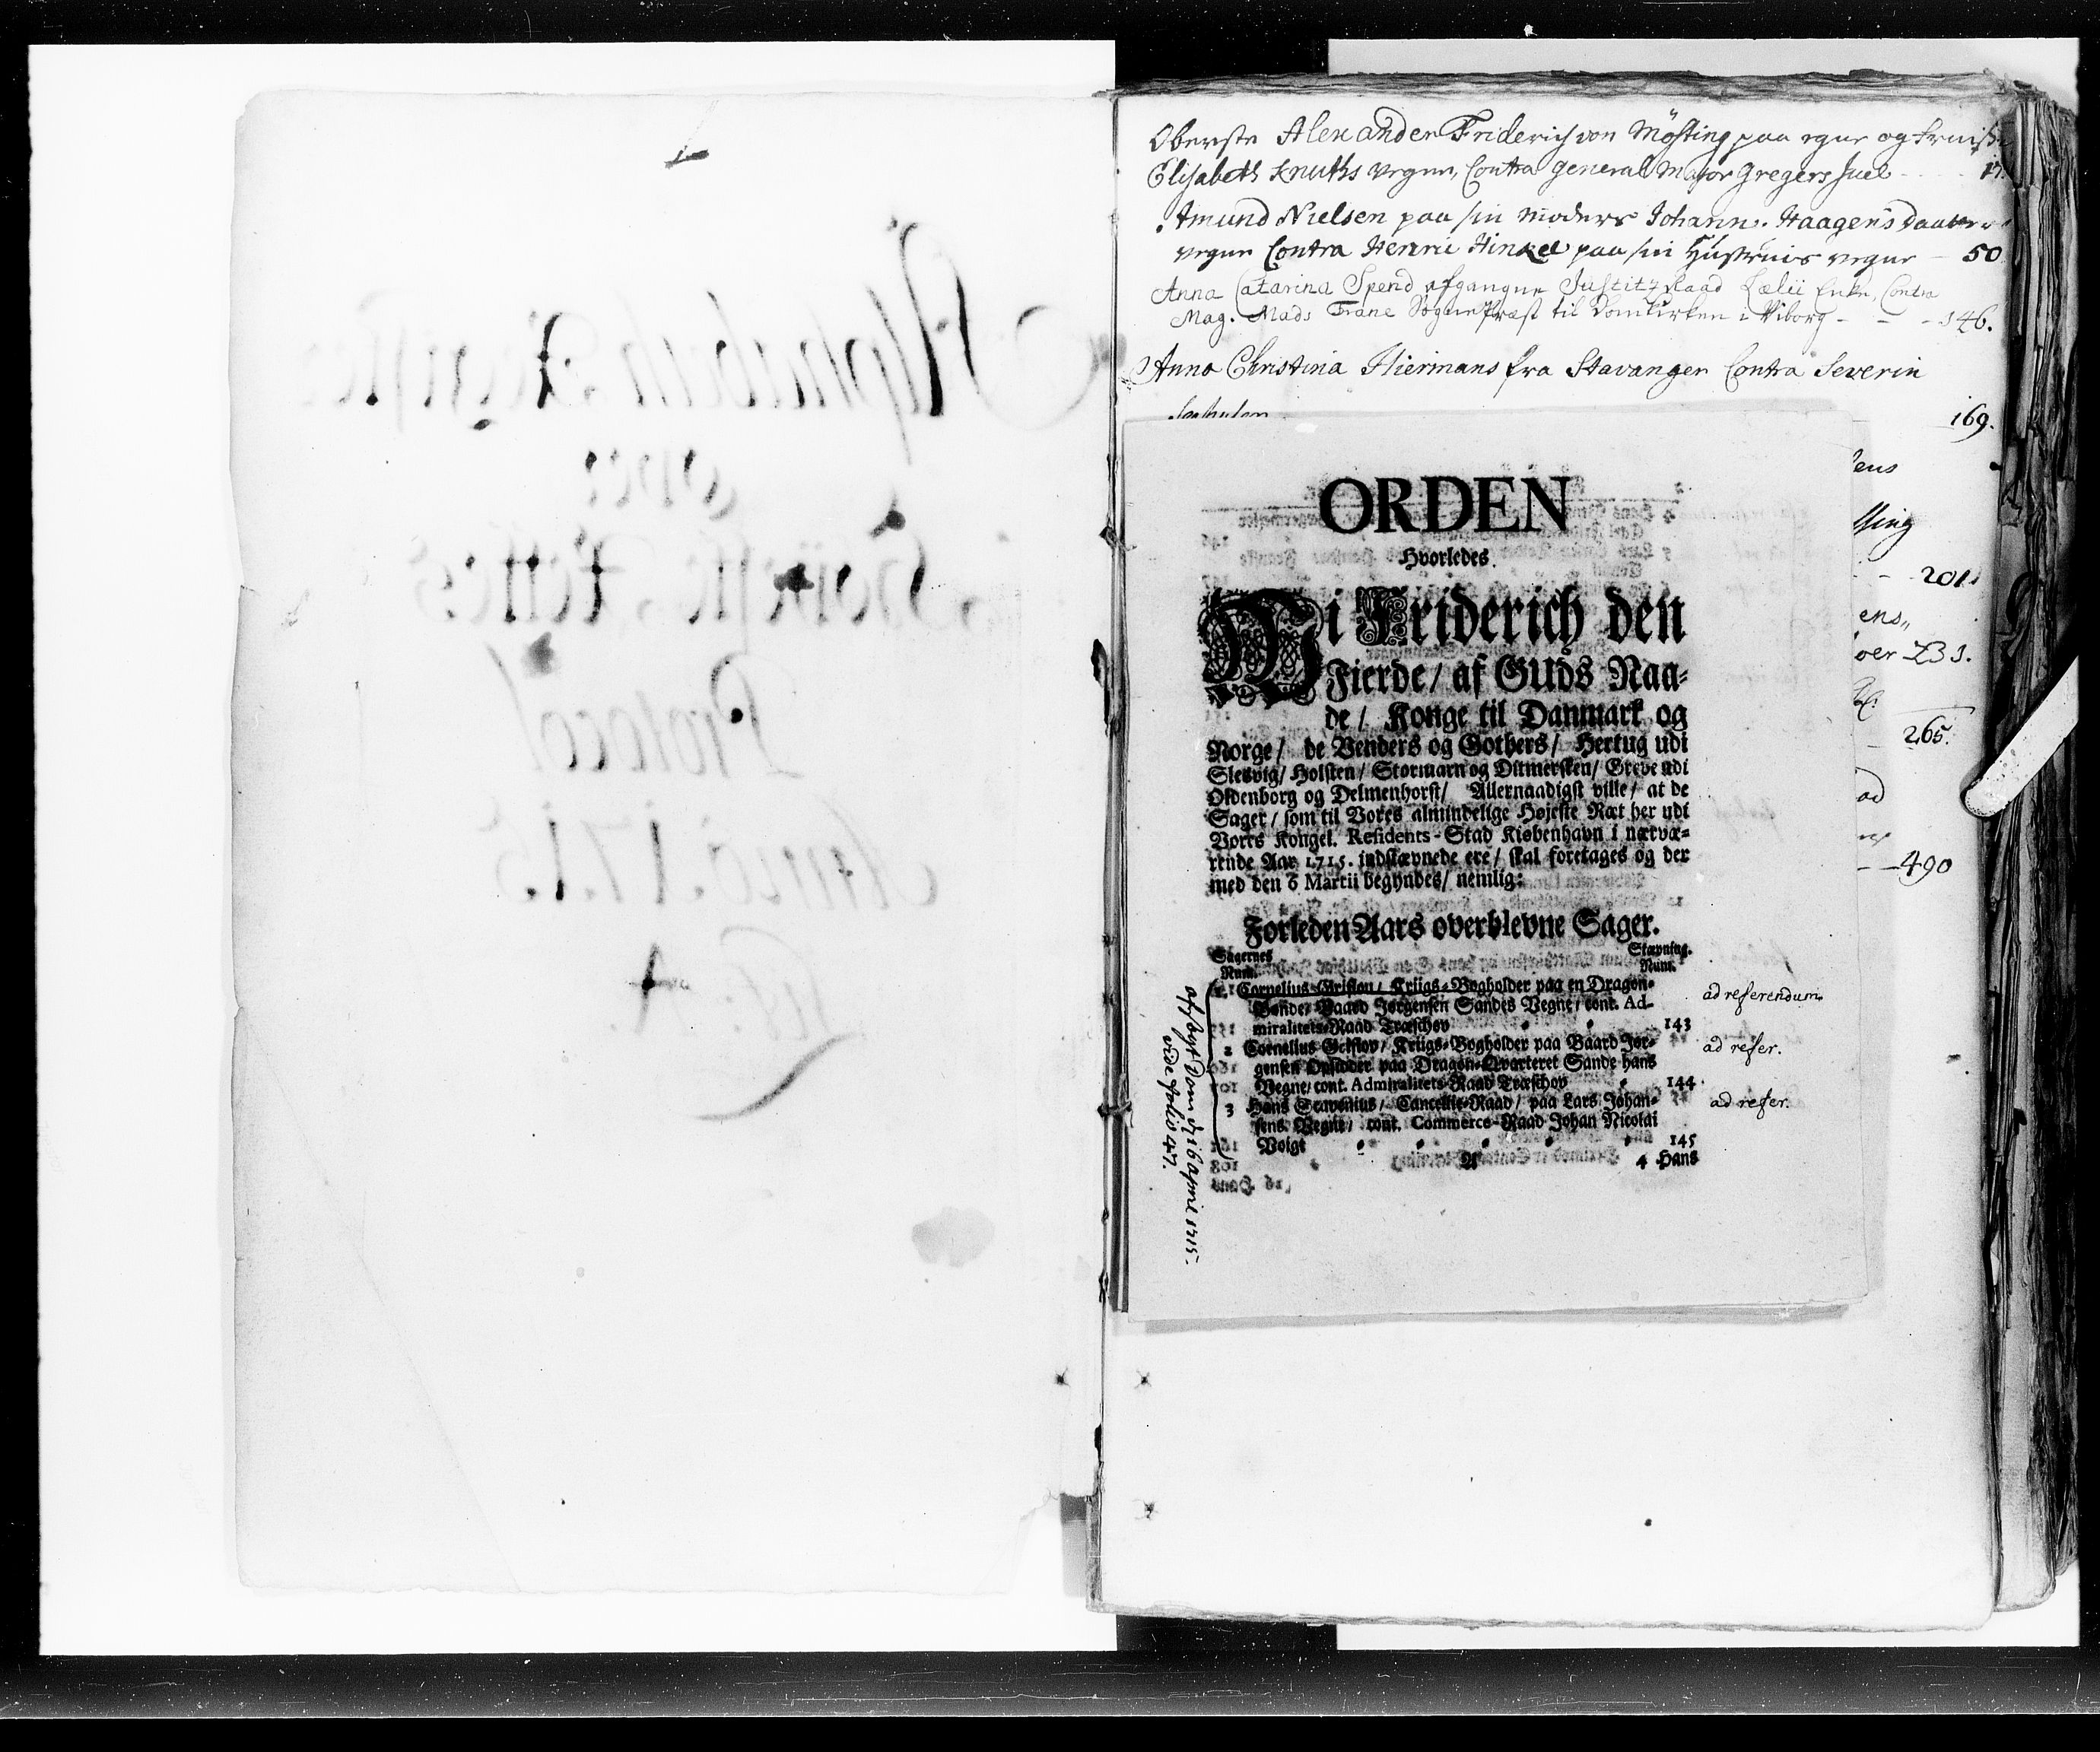 Oberste Alexander Friderich von Mösting paa egne og Frue
Elisabeth Knuths vegne, Contra General Major Gregers Juel - - - 17.
Amund Nielsen paa sin Moders Johann. Haagensdaatters
vegne Contra Henric Hinkel paa sin Hustruis vegne - 50
Anna Catarina Spend afgangne Justitz Raad Lælii Enke, Contra
Mag. Mads Trane Sognepræst til Domkirken i Viborg - - - 146.
Anna Christina Hiermans fra Stavanger Contra Severin
169.
ens
sing
- - 201.
ens,,
oer 231.
265.
ad
- - 490
ORDEN
Hvorledes
Vi Friderich den
Fierde/ af GUds Naa-
de/ Konge til Danmark og
Norge/ de Venders og Gothers/ Hertug udi
Slesvig/ Holsten/ Stormarn og Ditmersken/ Greve udi
Oldenborg og Delmenhorst/ Allernaadigst ville/ at de
Sager/ som til Vores almindelige Højeste Ræt her udi
Vores Kongel. Residents-Stad Kiøbenhavn i nærvæ-
rende Aar 1715. indstævnede ere/ skal foretages og der
med den 6 Martii begyndes/ nemlig:
Forleden Aars overblevne Sager.
Sagernes Stævning.
Num. Num.
1 Cornelius Grislov/ Kriigs-Bogholder paa en Dragon-
Bonde/ Baard Jørgensen Sandes Vegne/ cont. Ad-
miralitets-Raad Træschov 143
ad referendum.
2 Cornelius Grislov/ Kriigs-Bogholder paa Baard Jør-
gensen Opsidder paa Dragon-Qvarteret Sande hans
Vegne/ cont. Admiralitets-Raad Træschov 144
ad refer.
3 Hans Stavenius/ Cancellie-Raad/ paa Lars Johan-
sens Vegne/ cont. Commerce-Raad Johan Nicolai
Voigt 145
ad refer.
A 4 Hans
afsagt Dom d. 16 april 1715.
vide folio 47.